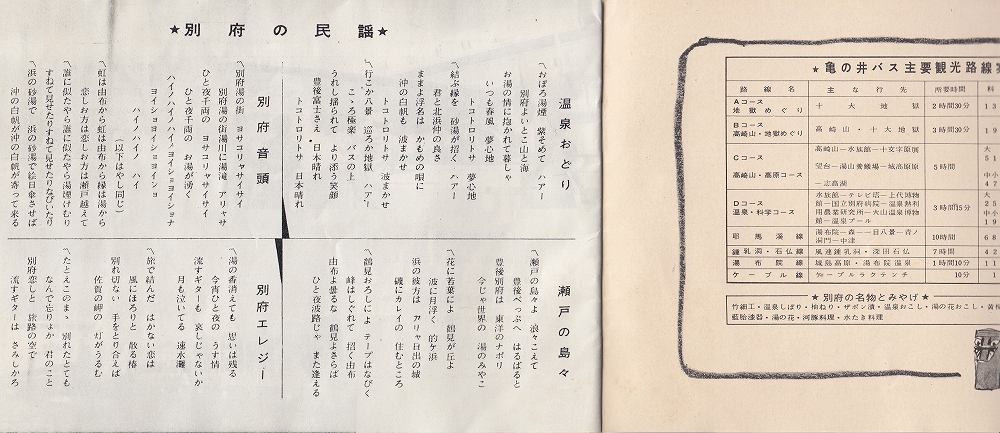 ★別府の民謡★
温泉おどり
〽おぼろ湯煙 紫そめて ハアー
別府よいとこ山と海
お湯の情に抱かれて暮しゃ
いつも春風 夢心地
トコトロリトサ 夢心地
〽結ぶ縁を 砂湯が招く ハアー
君と北浜仲の良さ
ままよ浮名は かもめの眼に
沖の白帆も 波まかせ
トコトロリトサ 波まかせ
〽行こか八景 巡ろか地獄 ハアー
こゝろ極楽 バスの上
うれし揺られて より添う笑顔
豊後富士さえ 日本晴れ
トコトロリトサ 日本晴れ
別府音頭
〽別府湯の街 ヨサコリャサイサイ
別府湯の街湯川に湯滝 アリャサ
ひと夜千両の ヨサコリャサイサイ
ひと夜千両の お湯が湧く
ハイノハイノハイノヨイショヨイショナ
ヨイショヨイショヨイショナ
ハイノハイノ ハイ
(以下はやし同じ)
〽虹は由布から虹は由布から縁は湯から
恋しお方は恋しお方は瀬戸越えて
〽誰に似たやら誰に似たやら湯煙けむり
すねて見せたりすねて見せたりなびいたり
〽浜の砂湯で 浜の砂湯で絵日傘させば
沖の白帆が沖の白帆が寄って来る
瀬戸の島々
〽瀬戸の島々よ 浪々こえて
豊後べっぷへ はるばると
豊後別府は 東洋のナポリ
今じゃ世界の 湯のみやこ
〽花に若葉によ 鶴見が丘よ
波に月浮く 的ケ浜
浜の彼方は アリャ日出の城
磯にカレイの 住むところ
〽鶴見おろしによ テープはなびく
峰はしぐれて 招く由布
由布よ曇るな 鶴見よさらば
ひと夜波路じゃ また逢える
別府エレジー
〽湯の香消えても 思いは残る
今宵ひと夜の うす情
流すギターも 哀しじゃないか
月も泣いてる 速水灘
〽旅で結んだ はかない恋は
風にほろりと 散る椿
別れ切ない 手をとり合えば
佐賀の岬の 灯がうるむ
〽たとえこのまゝ 別れたとても
なんで忘りょか 君のこと
別府恋しと 旅路の空で
流すギターは さみしかろ
★亀の井バス主要観光路線
路線名 主な行先 所要時間 料
Aコース 地獄めぐり 十大地獄 2時間30分 13
Bコース 高崎山・地獄めぐり 高崎山・十大地獄 3時間30分 19
Cコース 高崎山・高原コース 高崎山―水族館―十文字原展望台―湯山養鰻場―城高原―志高湖 5時間 大 51 中小 47
Dコース 温泉・科学コース 水族館―テレビ塔―上代博物館―国立別府病院―温泉熱利用農業研究所―火山温泉博物館―温泉プール 3時間15分 大 25 中小 20
耶馬渓線 湯布院―森―一目八景―青ノ洞門―中津 10時間 68
鍾乳洞・石仏線 風連鍾乳洞・深田石仏 7時間 42
湯布院線 城島高原・湯布院温泉 1時間10分 11
ケーブル線 ケーブルラクテンチ 10分 1
★別府の名物とみやげ★
竹細工・温泉しぼり・柚ねり・ザボン漬・温泉おこし・湯の花おこし・黄
藍胎漆器・湯の花・河豚料理・水たき料理